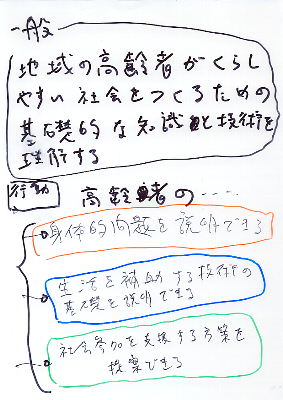 一般
地域の高齢者がくらし
やすい社会をつくるための
基礎的な知識と技術を
理解する
行動
高齢者の....
身体的問題を説明できる
生活を補助する技術の
基礎を説明できる
社会参加を支援する方策を
提案できる